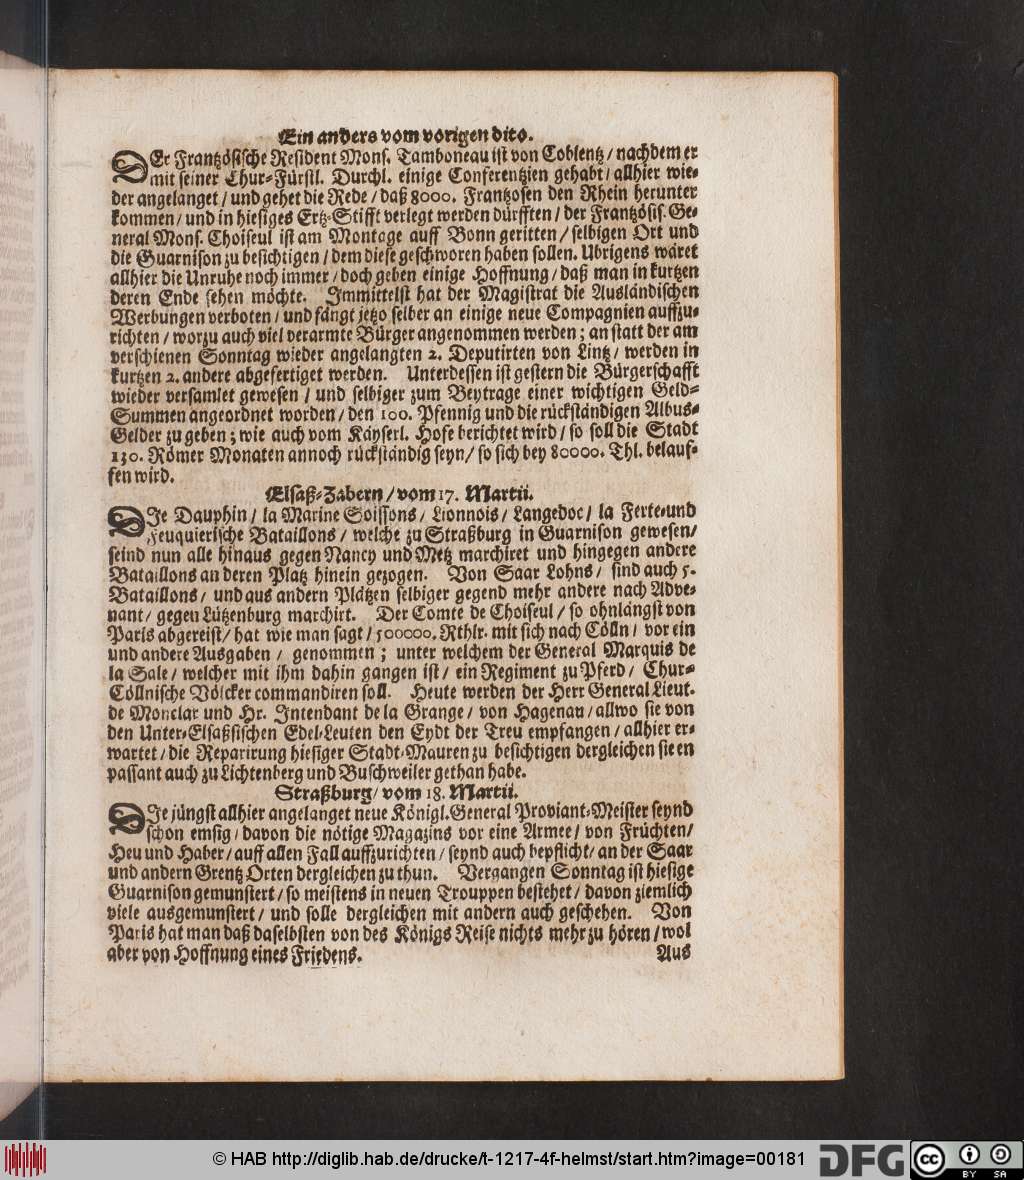 Ein anders vom vorigen dito.
DEr Frantzösische Resident Mons. Tamboneau ist von Coblentz / nachdem er
mit seiner Chur-Fürstl. Durchl. einige Conferentzien gehabt / allhier wie-
der angelanget / und gehet die Rede / daß 8000. Frantzosen den Rhein herunter
kommen / und in hiesiges Ertz-Stifft verlegt werden dürfften / der Frantzösis. Ge-
neral Mons. Choiseul ist am Montage auff Bonn geritten / selbigen Ort und
die Guarnison zu besichtigen / dem diese geschworen haben sollen. Ubrigens wäret
allhier die Unruhe noch immer / doch geben einige Hoffnung / daß man in kurtzen
deren Ende sehen möchte. Immittelst hat der Magistrat die Ausländischen
Werbungen verboten / und fängt jetzo selber an einige neue Compagnien auffzu-
richten / worzu auch viel verarmte Bürger angenommen werden ; an statt der am
verschienen Sonntag wieder angelangten 2. Deputirten von Lintz / werden in
kurtzen 2. andere abgefertiget werden. Unterdessen ist gestern die Bürgerschafft
wieder versamlet gewesen / und selbiger zum Beytrage einer wichtigen Geld-
Summen angeordnet worden / den 100. Pfennig und die rückständigen Albus-
Gelder zu geben ; wie auch vom Käyserl. Hofe berichtet wird / so soll die Stadt
130. Römer Monaten annoch rückständig seyn / so sich bey 80000. Thl. belauf-
fen wird.
Elsaß-Zabern / vom 17. Martii.
DIe Dauphin / la Marine Soissons / Lionnois / Langedoc / la Ferte-und
Feuquierische Bataillons / welche zu Straßburg in Guarnison gewesen /
seind nun alle hinaus gegen Nancy und Metz marchiret und hingegen andere
Bataillons an deren Platz hinein gezogen. Von Saar Lohns / sind auch 5.
Bataillons / und aus andern Plätzen selbiger gegend mehr andere nach Adve-
nant / gegen Lützenburg marchirt. Der Comte de Choiseul / so ohnlängst von
Paris abgereist / hat wie man sagt / 500000. Rthlr. mit sich nach Cölln / vor ein
und andere Ausgaben / genommen ; unter welchem der General Marquis de
la Sale / welcher mit ihm dahin gangen ist / ein Regiment zu Pferd / Chur-
Cöllnische Völcker commandiren soll. Heute werden der Herr General Lieut.
de Monclar und Hr. Intendant de la Grange / von Hagenau / allwo sie von
den Unter-Elsaßsischen Edel-Leuten den Eydt der Treu empfangen / allhier er-
wartet / die Reparirung hiesiger Stadt-Mauren zu besichtigen dergleichen sie en
passant auch zu Lichtenberg und Buschweiler gethan habe.
Straßburg / vom 18. Martii.
DIe jüngst allhier angelanget neue Königl. General Proviant-Meister seynd
schon emsig / davon die nötige Magazins vor eine Armee / von Früchten /
Heu und Haber / auff allen Fall auffzurichten / seynd auch bepflicht / an der Saar
und andern Grentz Orten dergleichen zu thun. Vergangen Sonntag ist hiesige
Guarnison gemunstert / so meistens in neuen Trouppen bestehet / davon ziemlich
viele ausgemunstert / und solle dergleichen mit andern auch geschehen. Von
Paris hat man daß daselbsten von des Königs Reise nichts mehr zu hören / wol
aber von Hoffnung eines Friedens.
Aus
© HAB http://diglib.hab.de/drucke/t-1217-4f-helmst/start.htm?image=00181
DFG
cc
BY SA